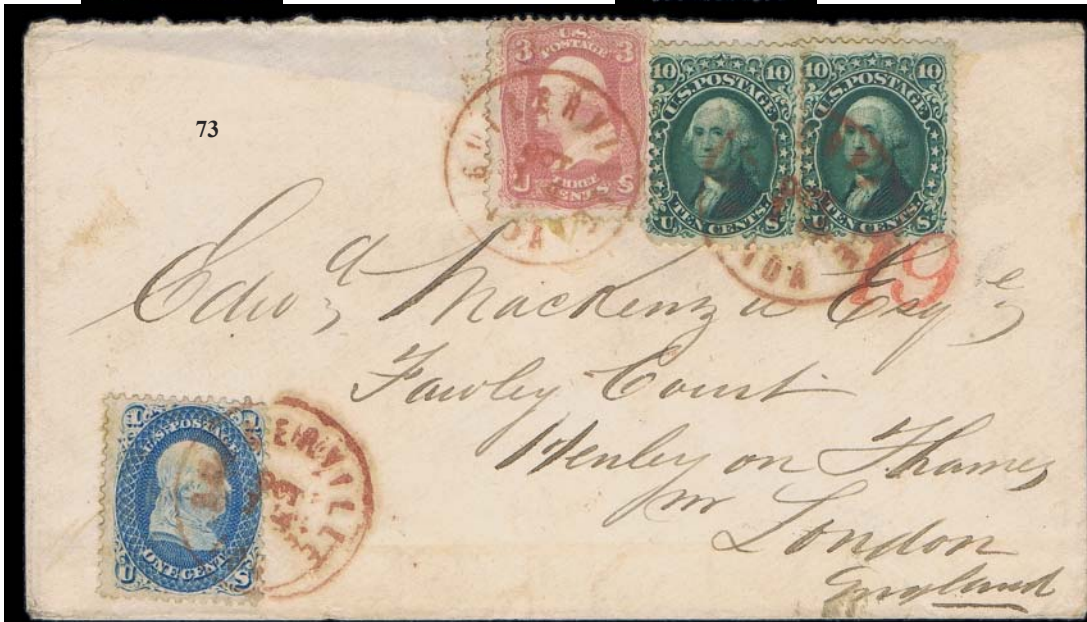 73
3 U.S. 3
POSTAGE
U THREE S
CENTS
10 U.S. POSTAGE 10
U TEN CENTS. S
10 U.S. POSTAGE 10
U TEN CENTS. S
OCT
IOWA
19
Edwd Mackenzie Esqre
Fawley Court
Henley on Thames
nr London
England
1 U.S. POSTAGE 1
U ONE CENT S
OCT